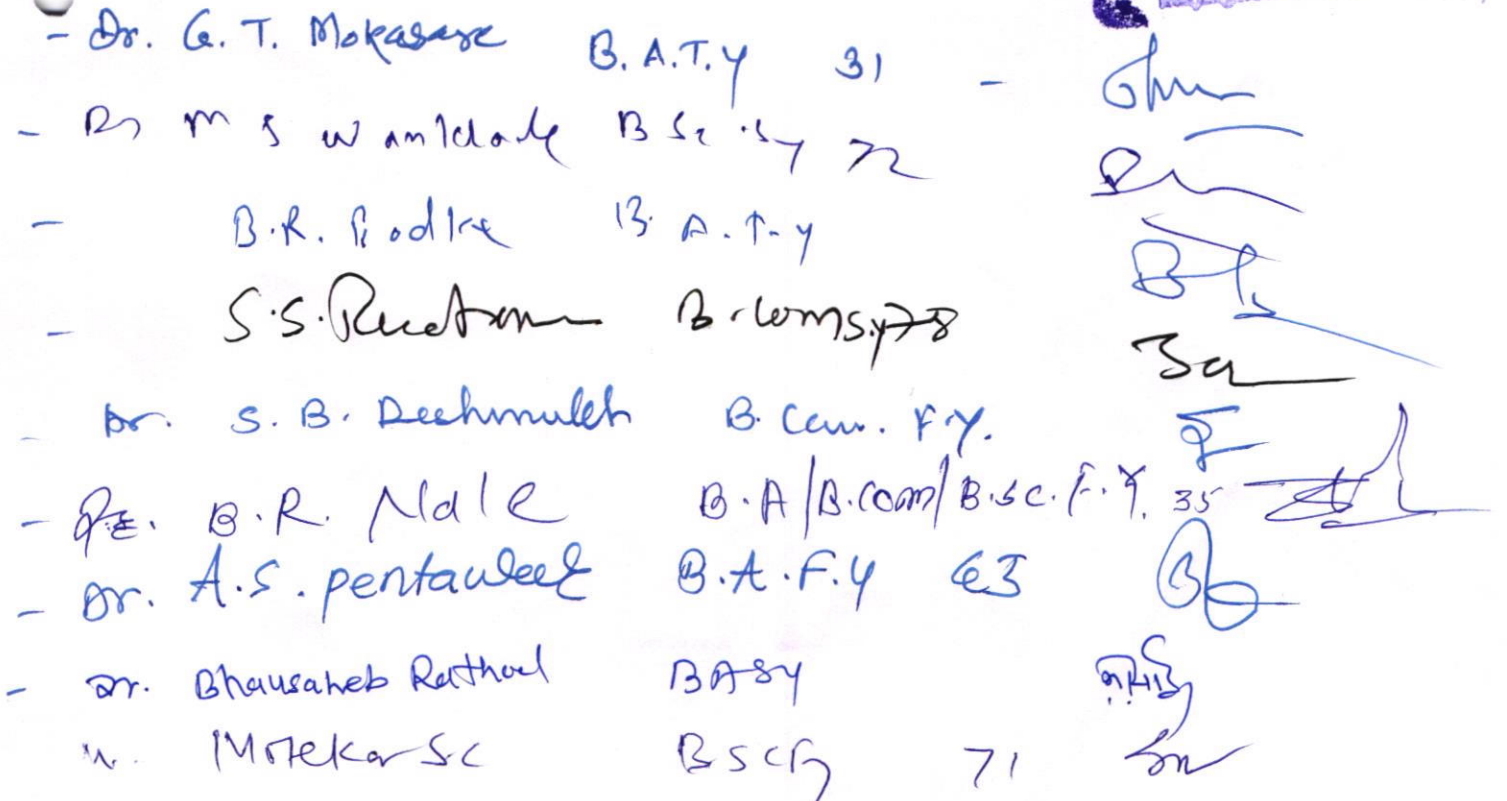 - Dr. G. T. Mokasare B. A. T. Y 31 -
- Dr M S Wankhade B Sc Sy 72
- B. R. Bodke B. A. T. Y
- S. S. B. Com S.Y 78
- Dr. S. B. Deshmukh B. Com. F.Y.
- B. R. Nale B.A/B.Com/B.Sc. F.Y. 35
- Dr. A. S. Pentawar B.A. F.Y 63
- Dr. Bhausaheb Rathod BASY
Motekar S.C BSc Fy 71